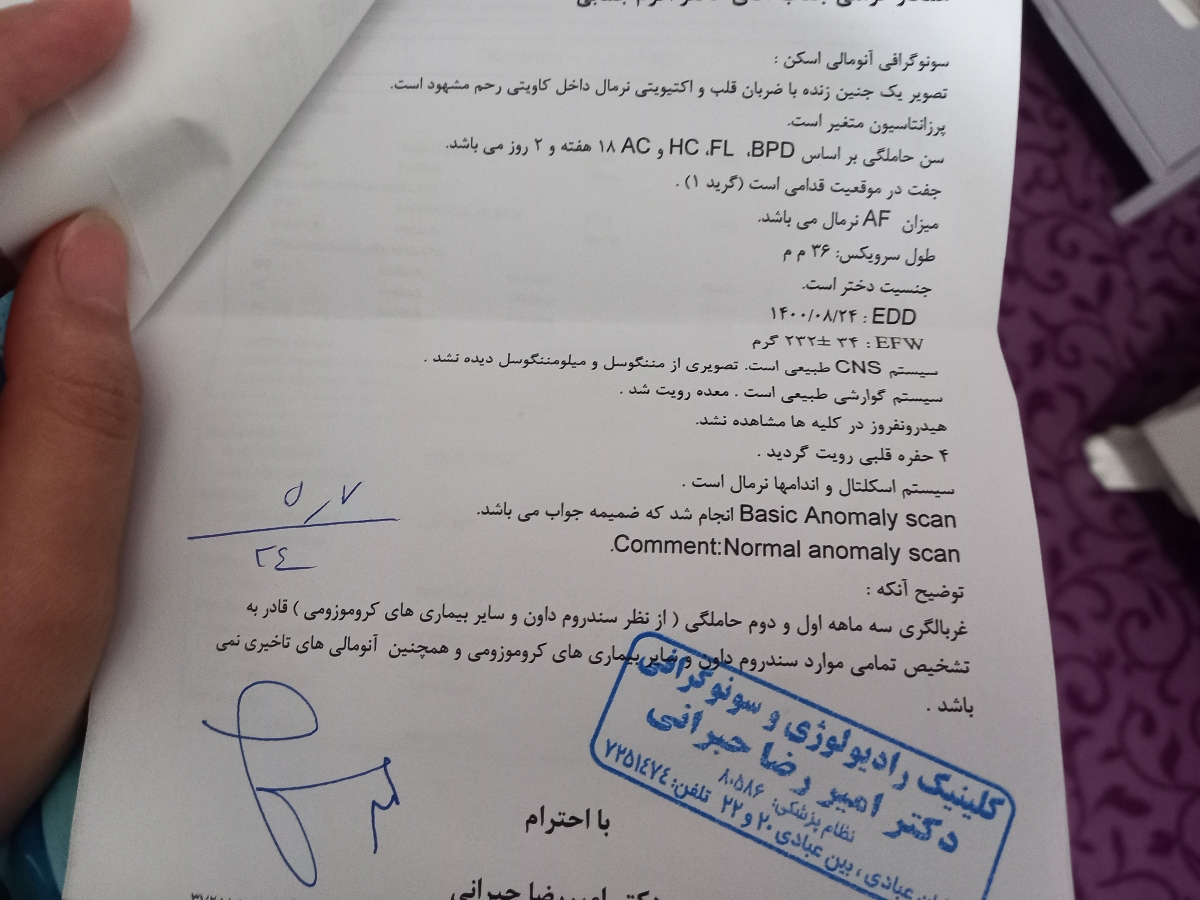 سونوگرافی آنومالی اسکن :
تصویر یک جنین زنده با ضربان قلب و اکتیویتی نرمال داخل کاویتی رحم مشهود است.
پرزانتاسیون متغیر است.
سن حاملگی بر اساس BPD، HC ،FL و AC ۱۸ هفته و ۲ روز می باشد.
جفت در موقعیت قدامی است (گرید ۱) .
میزان AF نرمال می باشد.
طول سرویکس: ۳۶ م م
جنسیت دختر است.
EDD : ۱۴۰۰/۰۸/۲۴
EFW : ۳۴ ±۲۳۲ گرم
سیستم CNS طبیعی است. تصویری از مننگوسل و میلومننگوسل دیده نشد .
سیستم گوارشی طبیعی است . معده رویت شد .
هیدرونفروز در کلیه ها مشاهده نشد.
۴ حفره قلبی رویت گردید .
سیستم اسکلتال و اندامها نرمال است .
Basic Anomaly scan انجام شد که ضمیمه جواب می باشد.
Comment:Normal anomaly scan.
۵٫۷
۲۴
توضیح آنکه :
غربالگری سه ماهه اول و دوم حاملگی ( از نظر سندروم داون و سایر بیماری های کروموزومی ) قادر به
تشخیص تمامی موارد سندروم داون و سایر بیماری های کروموزومی و همچنین آنومالی های تاخیری نمی
باشد .
کلینیک رادیولوژی و سونوگرافی
دکتر امیر رضا جیرانی
نظام پزشکی: ۸۰۵۸۶
عبادی ، بین عبادی ۲۰ و ۲۲ تلفن: ۷۲۵۱۴۷۴
با احترام
دکتر امیررضا جیرانی